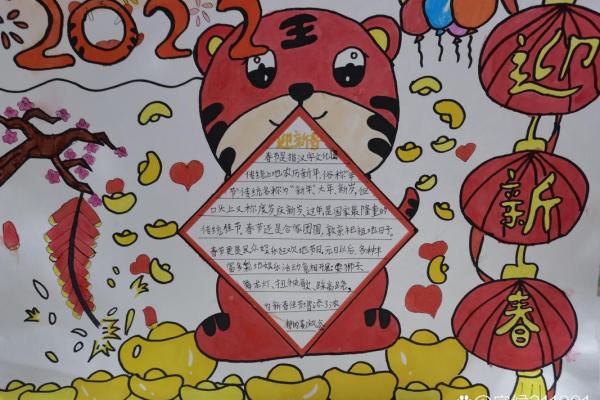 2022
王
迎新春
迎新春
春节是指汉字文化圈
传统上的农历新年,俗称"年
节"传统名称为"新年、大年、新岁,但
口头上又称度岁、庆新岁、过年是国家最隆重的
传统佳节,春节还是合家团圆,敦亲祀祖地日子。
春节更是民众娱乐狂欢地节日,元旦以后,各种丰
富多彩地娱乐活动竞相开展:耍狮子、
舞龙灯、扭秧歌、踩高跷
为新春佳节增添了浓
郁的喜